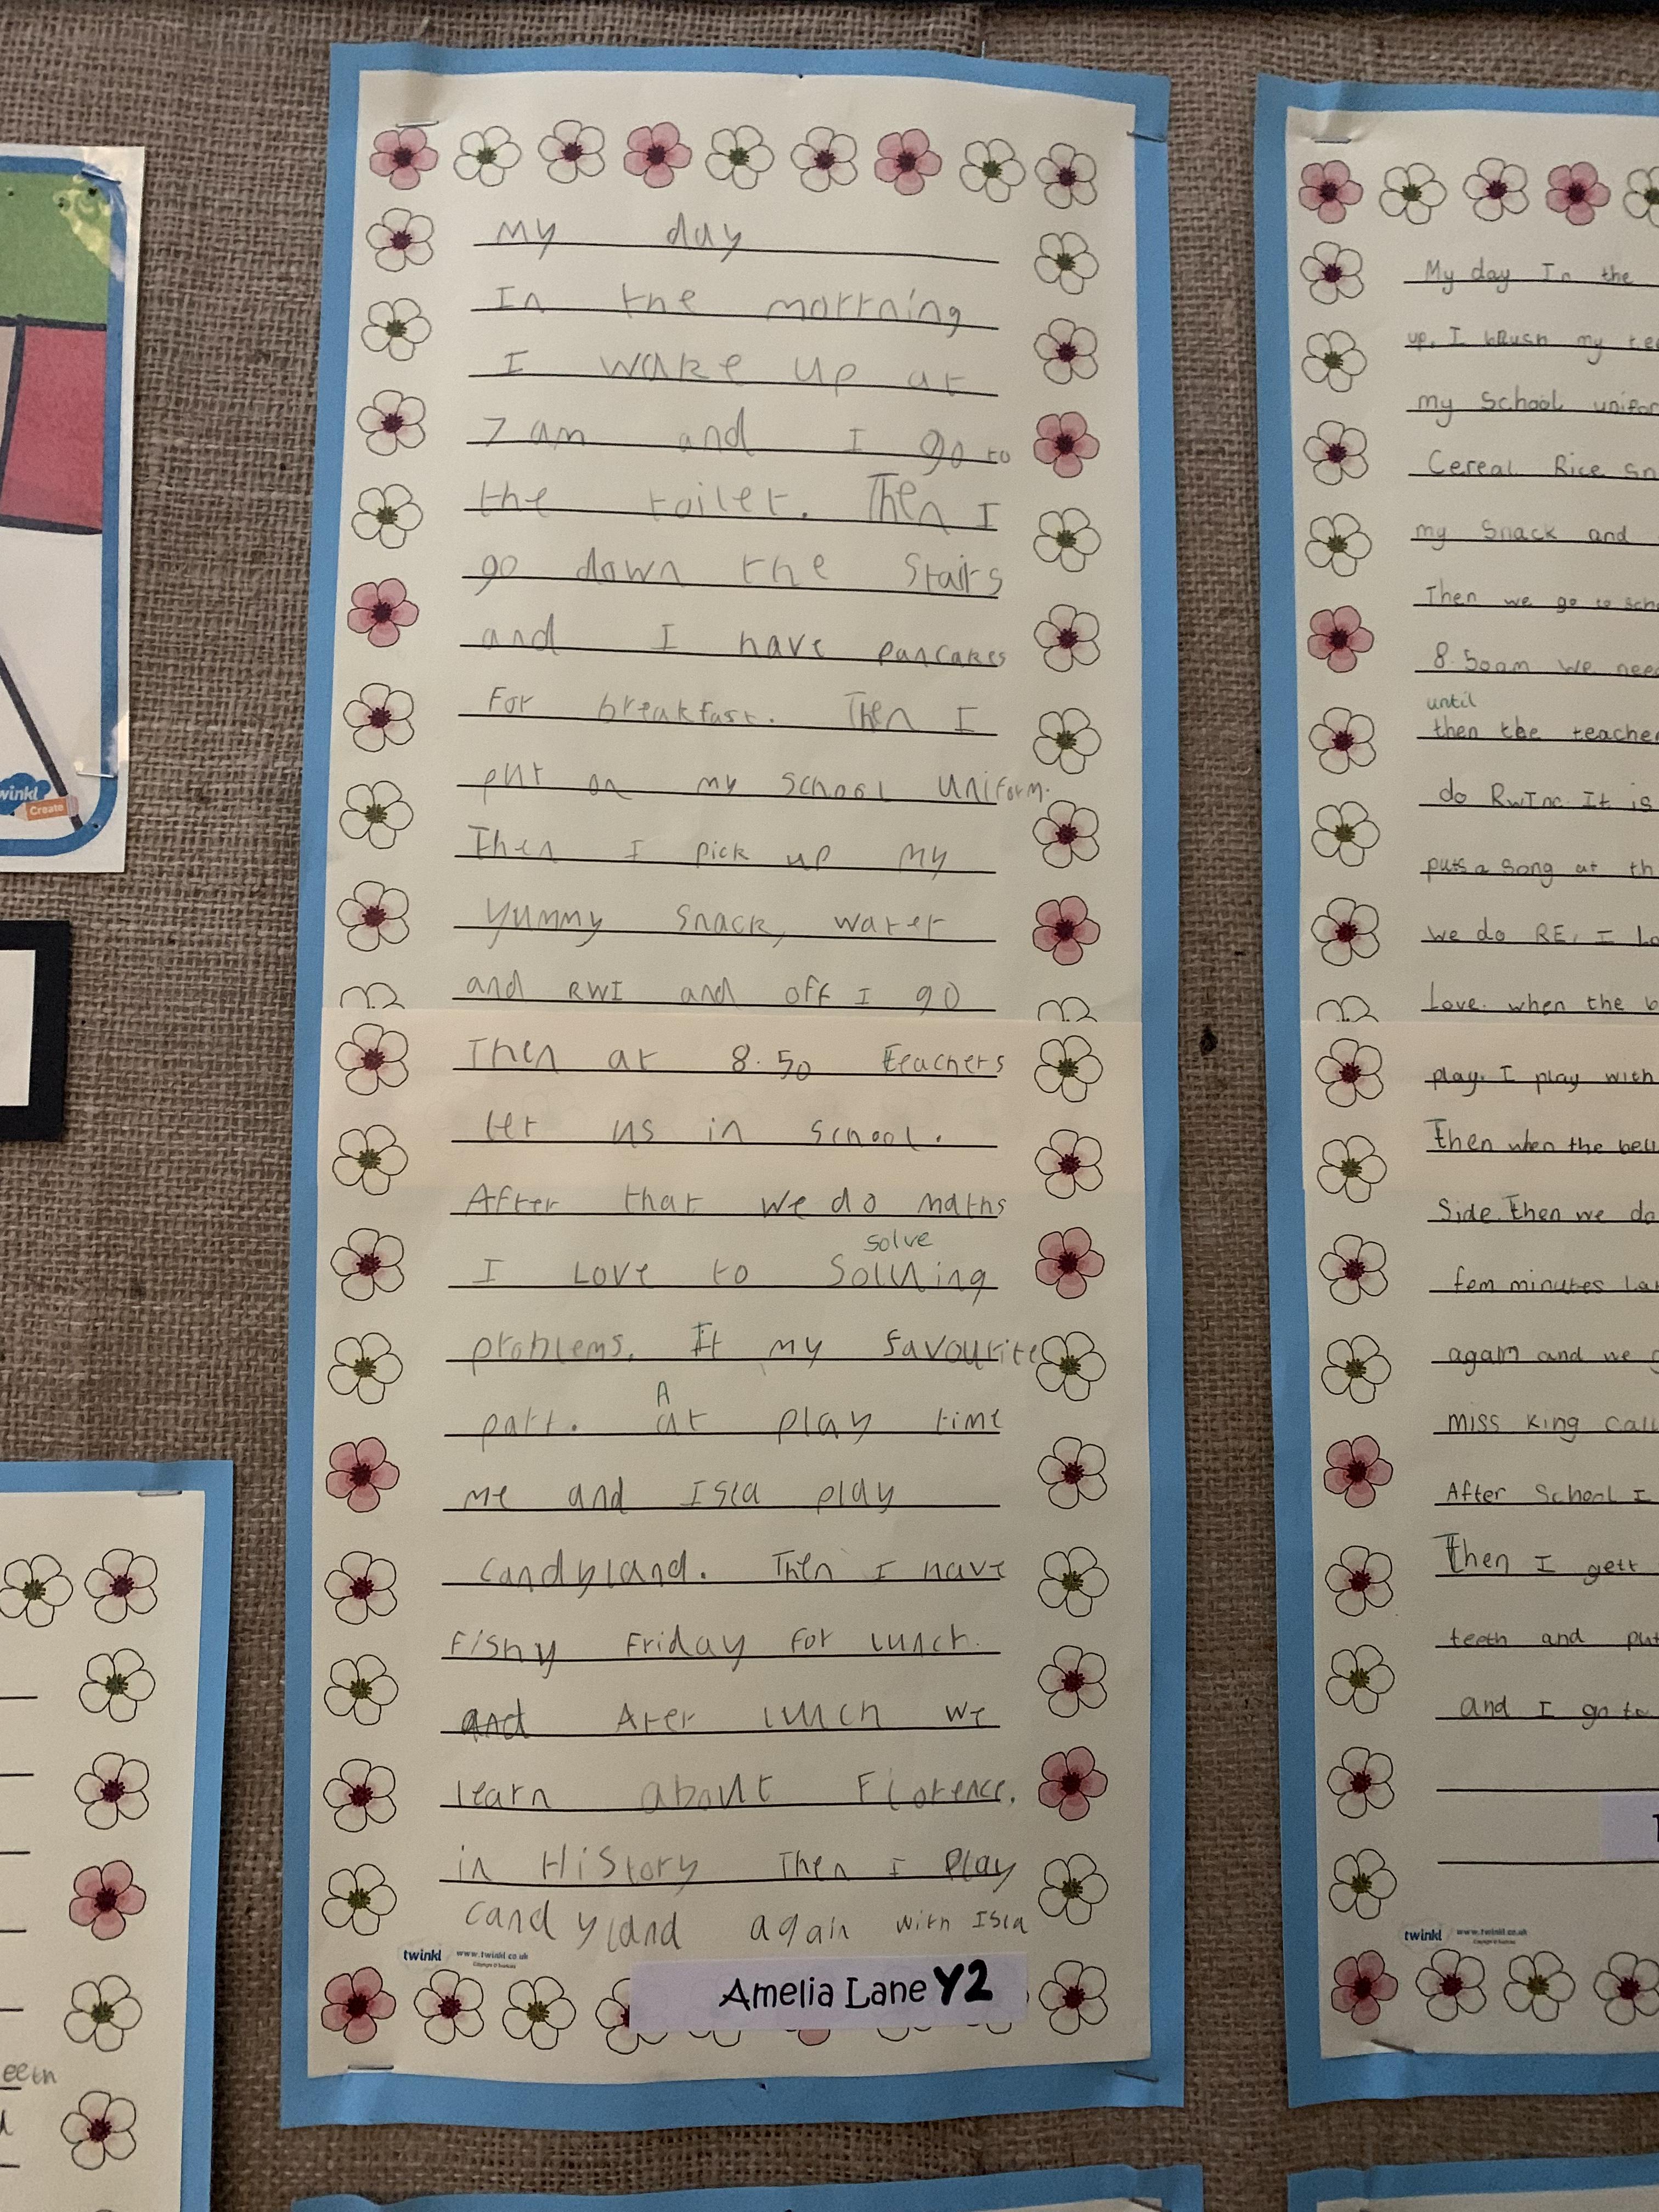 my day
In the morrning
I wake up at
7 am and I go to
the toilet. Then I
go down the stairs
and I have pancakes
For breakfast. Then I
put on my school uniform.
Then I pick up my
yummy snack, water
and RWI and off I go
Then at 8.50 teachers
let us in school.
After that we do maths
solve
I Love to Solving
problems. It my favourite
part. at play time
A
me and Isla play
candyland. Then I have
Fishy Friday for lunch.
and Ater lunch we
learn about Florence.
in History Then I Play
candyland again with Isla
twinkl www.twinkl.co.uk
Amelia Lane Y2
My day In the
up, I brush my
my School
Cereal Rice
my Snack and
Then we go to
8.50am we
until
then the
do RWInc. It is
puts a song at
we do RE, I
Love. when the
play. I play with
Then when the
Side. Then we do
fem minutes
again and we
miss king
After School I
Then I gett
teeth and
and I go to
twinkl www.twinkl.co.uk
winkl
Create
eeth